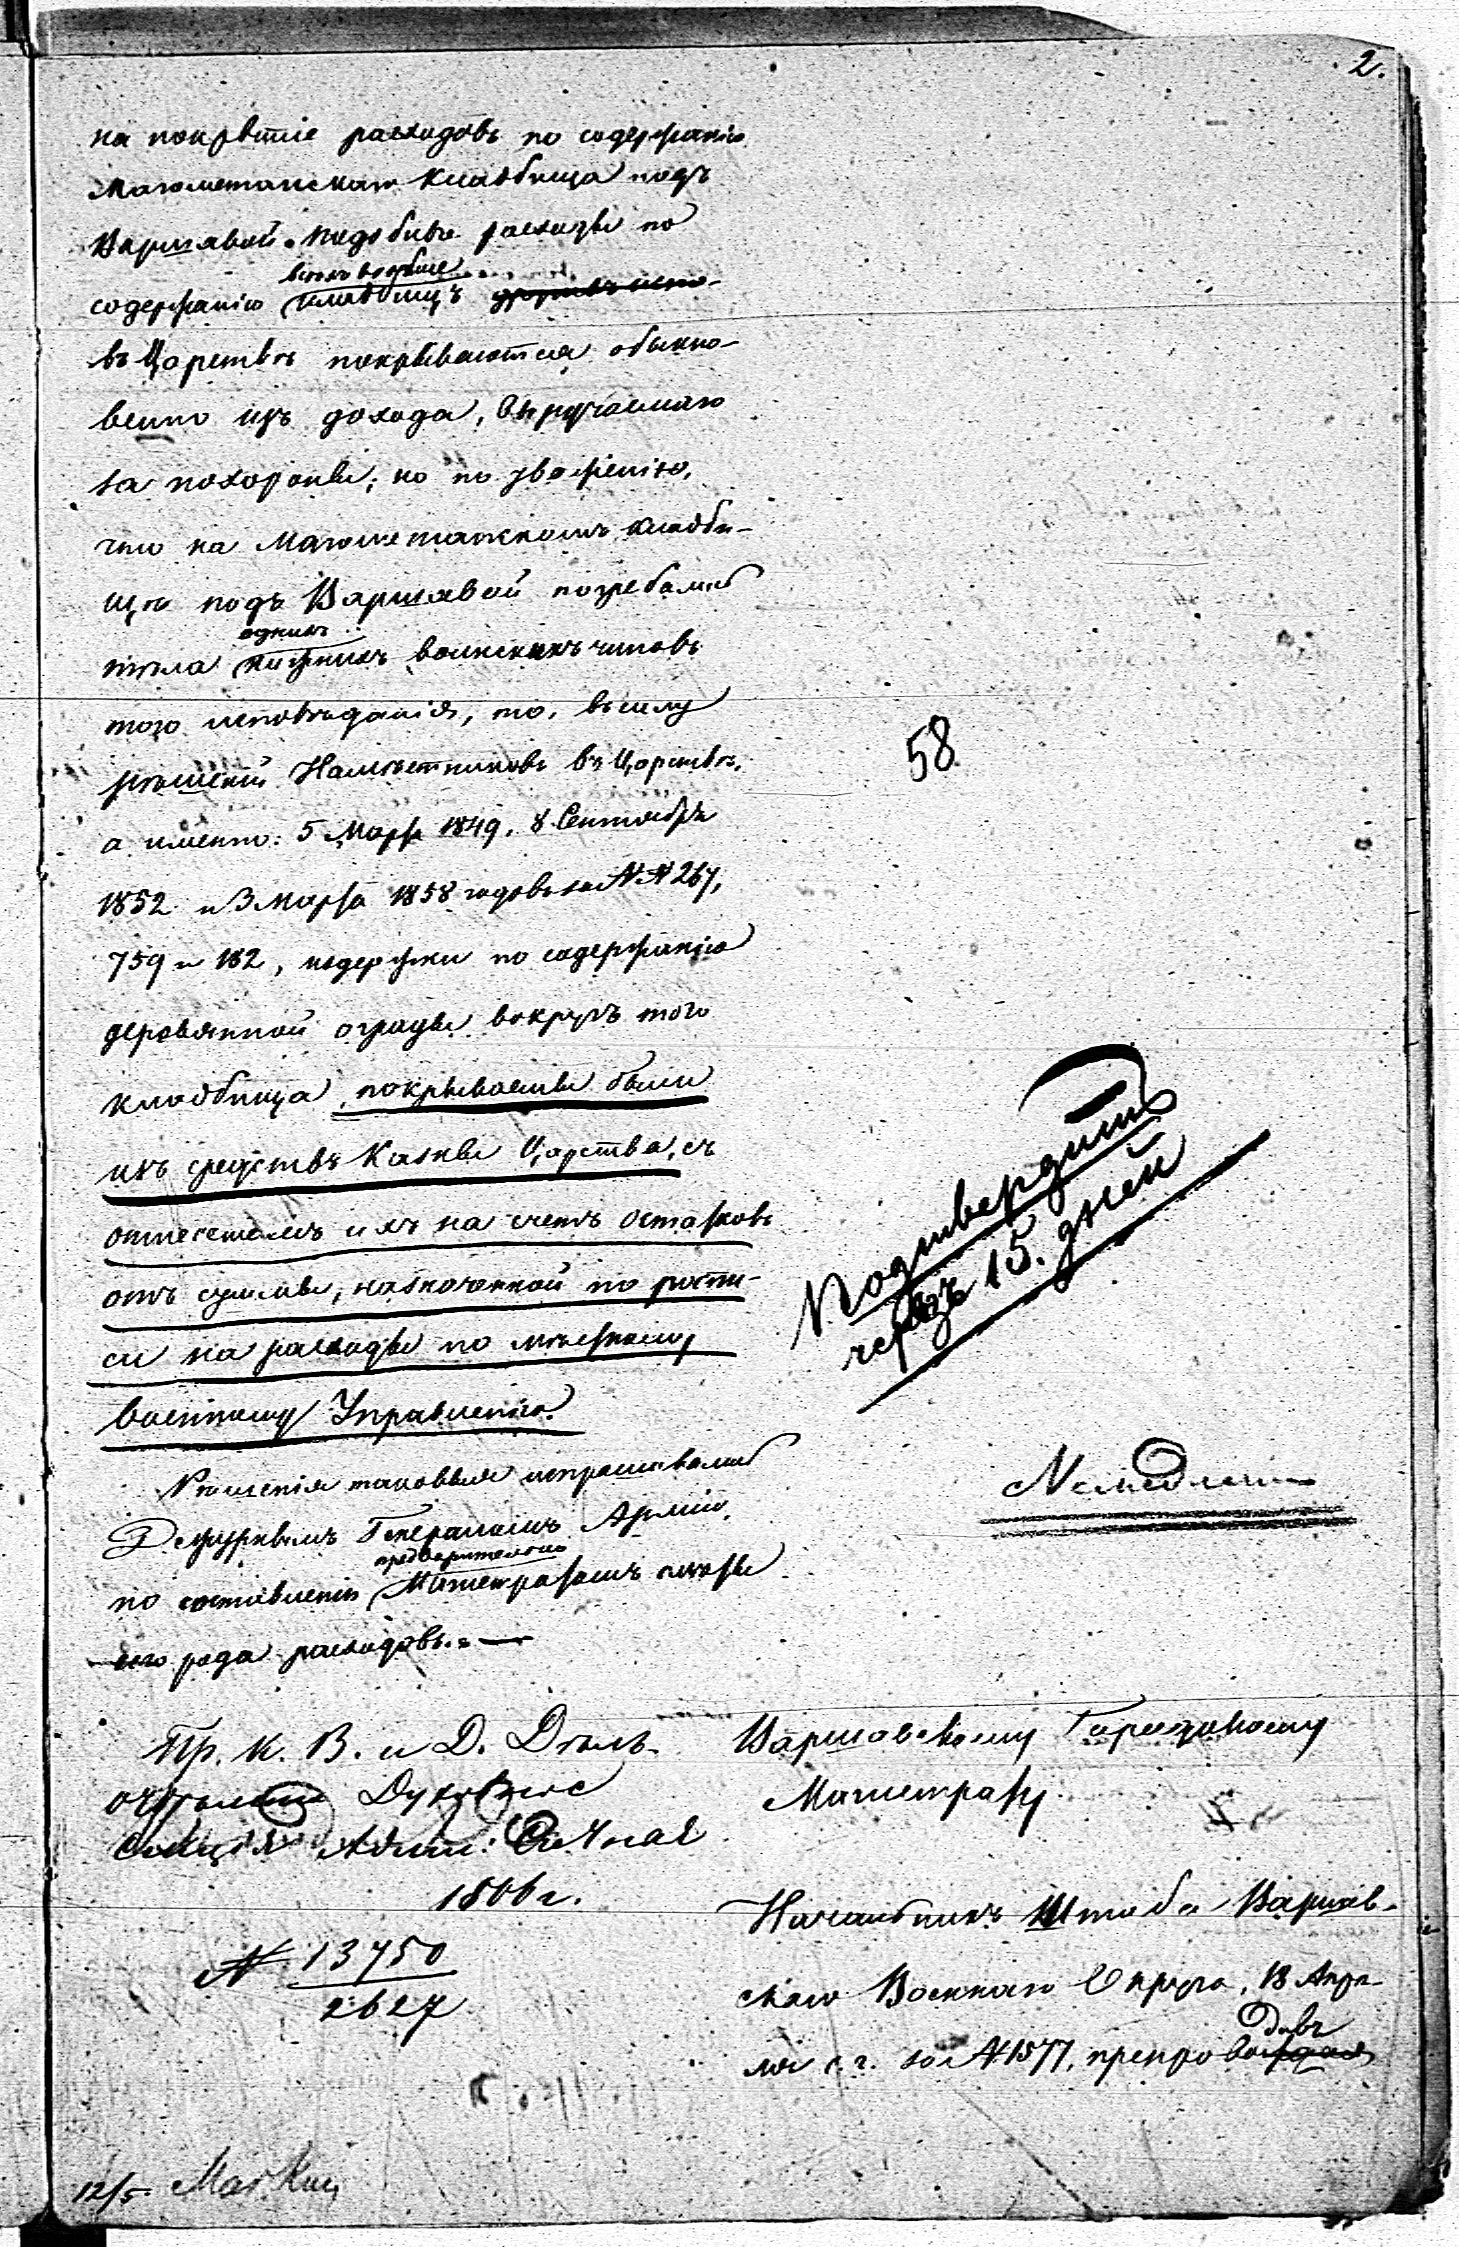 2.
на покрытіе расходовъ по содержанію
Магометанскаго кладбища подъ
Варшавой. Подобные расходы по
всѣхъ вообще
содержанію кладбищъ
въ Царствѣ покрываются обыкно-
венно изъ дохода, выручаемаго
за похороны; но по уваженію,
что на Магометанскомъ кладби-
щѣ подъ Варшавой погребались
однихъ
тѣла нижнихъ воинскихъ чиновъ
того исповѣданія, то, въ силу
рѣшеній Намѣстниковъ въ Царствѣ,
а именно: 5 Марта 1849, 8 Сентября
1852 и 3 Марта 1858 годовъ за NN 267,
759 и 182, издержки по содержанію
деревянной ограды вокругъ того
кладбища, покрываемы были
изъ средствъ Казны Царства, съ
отнесеніемъ ихъ на счетъ остатковъ
отъ суммы, назначенной по роспи-
си на расходы по мѣстному
военному Управленію.
Рѣшенія таковыя испрашивались
Дежурнымъ Генераломъ Арміи,
предварительно
по составленіи Магистратомъ смѣты
сего рода расходовъ.
58
Подтвердить
черезъ 15. дней
Немедленно
Пр. К. В. и Д. Дѣлъ
Духовныхъ
Секція Админ:
1866 г.
N 13750
2627
Варшавскому Городскому
Магистрату
Начальникъ Штаба Варшав-
скаго Военнаго Округа, 18 Апрѣ-
дивъ
ля с. г. за N 1577, препровождая
12/5.